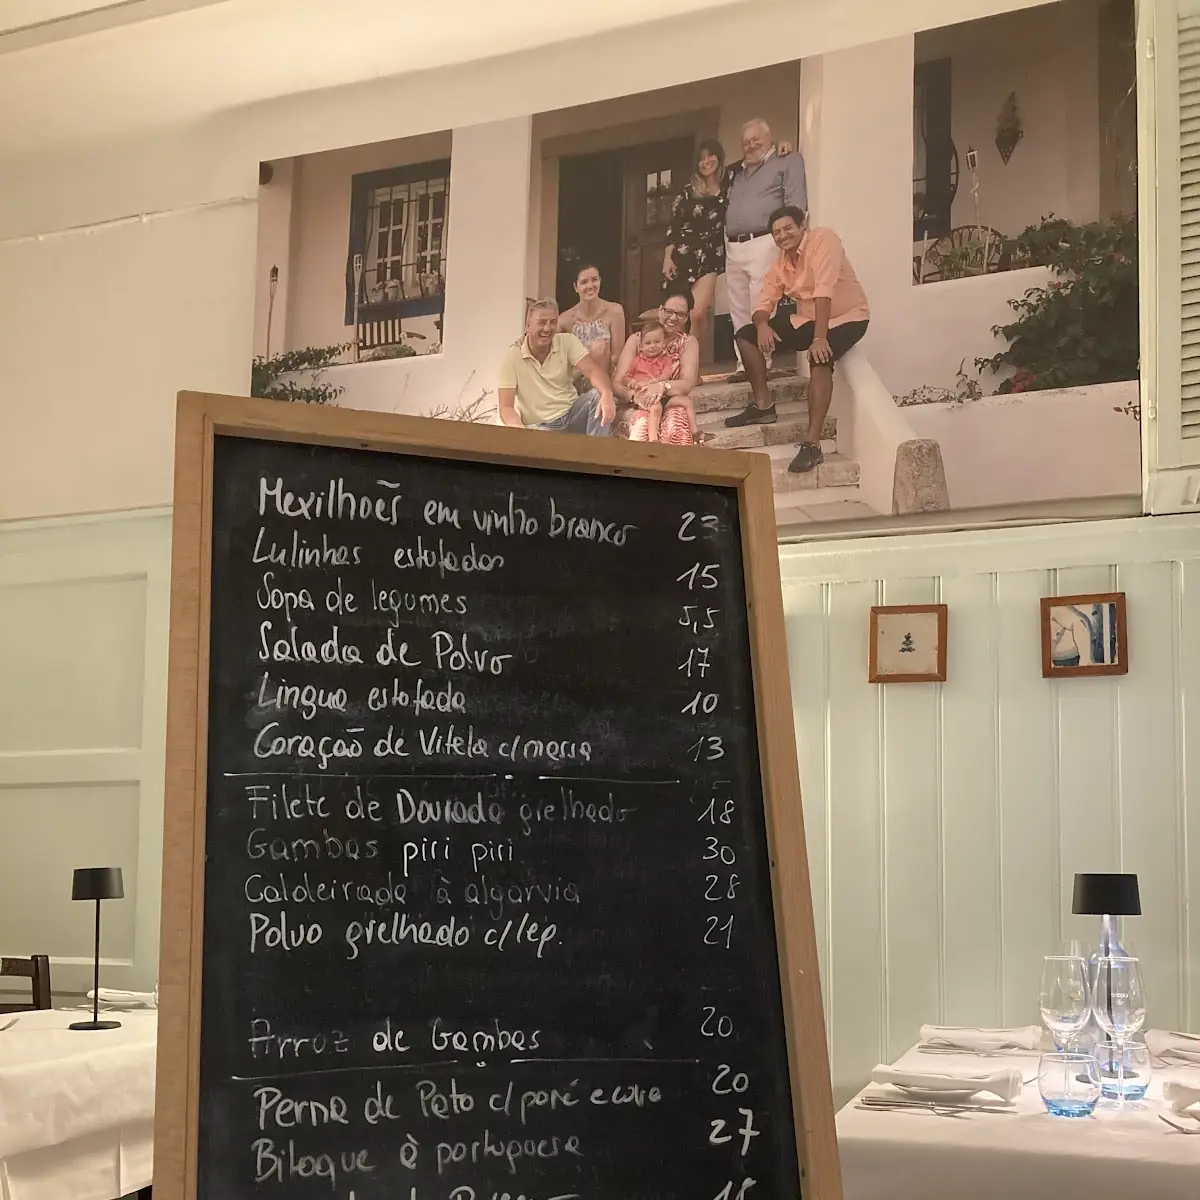 Mexilhoēs em vinho branco 23
Lulinhas estofadas 15
Sopa de legumes 5,5
Salada de Polvo 17
Lingua estofada 10
Coração de Vitela c/massa 13
Filete de Dourada grelhado 18
Gambas piri piri 30
Caldeirada à algarvia 28
Polvo grelhado c/leg. 21
Arroz de Gambas 20
Perna de Pato c/puré e couve 20
Bitoque à portuguesa 27